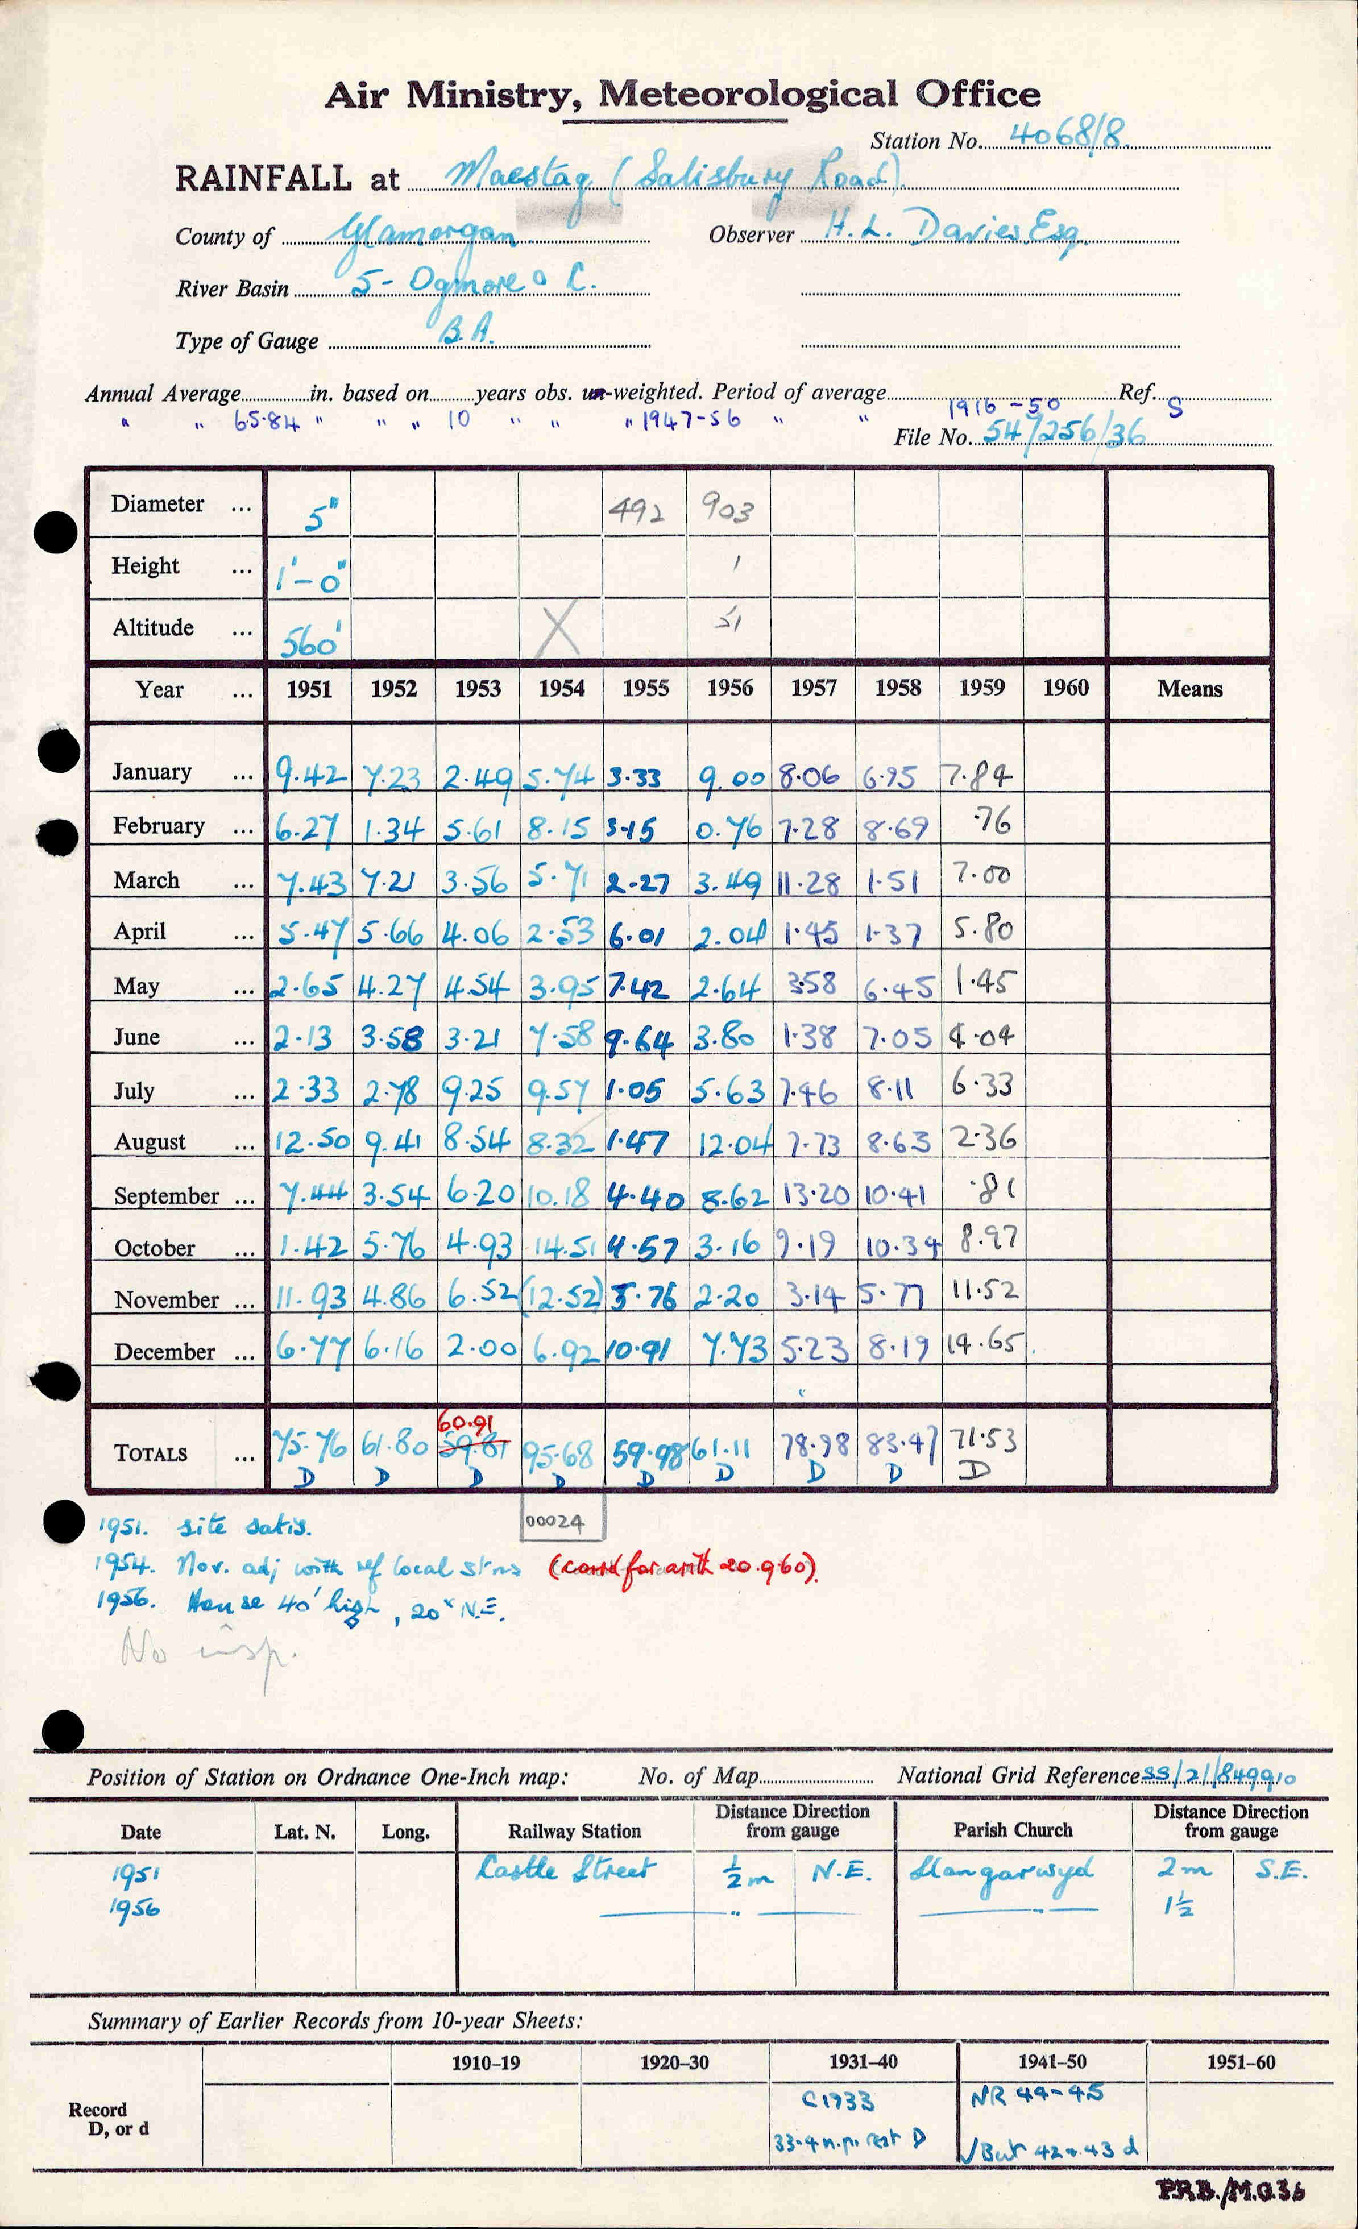 Air Ministry, Meteorological Office
Station No. 4068/8
RAINFALL at Maesteg (Salisbury Road).
County of Glamorgan Observer H. L. Davies, Esq.
River Basin 5 - Ogmore & C.
Type of Gauge B.A.
Annual Average in. based on years obs. un-weighted. Period of average 1916-50 Ref. S
" " 65.84 " " " 10 " " " 1947-56 " "
File No. 547256/36
Diameter ... 5" 492 903
Height ... 1'-0" 1
Altitude ... 560' X 51
Year ... 1951 1952 1953 1954 1955 1956 1957 1958 1959 1960 Means
January ... 9.42 7.23 2.49 5.74 3.33 9.00 8.06 6.95 7.84
February ... 6.27 1.34 5.61 8.15 3.15 0.76 7.28 8.69 .76
March ... 7.43 7.21 3.56 5.71 2.27 3.49 11.28 1.51 7.00
April ... 5.47 5.66 4.06 2.53 6.01 2.04 1.45 1.37 5.80
May ... 2.65 4.27 4.54 3.95 7.42 2.64 3.58 6.45 1.45
June ... 2.13 3.58 3.21 7.58 9.64 3.80 1.38 7.05 4.04
July ... 2.33 2.78 9.25 9.57 1.05 5.63 7.46 8.11 6.33
August ... 12.50 9.41 8.54 8.32 1.47 12.04 7.73 8.63 2.36
September ... 7.44 3.54 6.20 10.18 4.40 8.62 13.20 10.41 .81
October ... 1.42 5.76 4.93 14.51 4.57 3.16 9.19 10.34 8.97
November ... 11.93 4.86 6.52 (12.52) 5.76 2.20 3.14 5.77 11.52
December ... 6.77 6.16 2.00 6.92 10.91 7.73 5.23 8.19 14.65
60.91
TOTALS ... 75.76 61.80 59.81 95.68 59.98 61.11 78.98 83.47 71.53
D D D D D D D D D
00024
1951. Site satis.
1954. Nov. adj with ref local stns (corrd for arith 20.9.60).
1956. House 40' high, 20x N.E.
No insp.
Position of Station on Ordnance One-Inch map: No. of Map National Grid Reference SS/21/849910
Date Lat. N. Long. Railway Station Distance Direction from gauge Parish Church Distance Direction from gauge
1951 Castle Street ½ m N.E. Llangarwyd 2 m S.E.
1956 " " 1½
Summary of Earlier Records from 10-year Sheets:
1910–19 1920–30 1931–40 1941–50 1951–60
Record D, or d
C1933 NR 44-45
33-4 n.p. rest D √ But 42 & 43 d
P.R.B./M.O.36